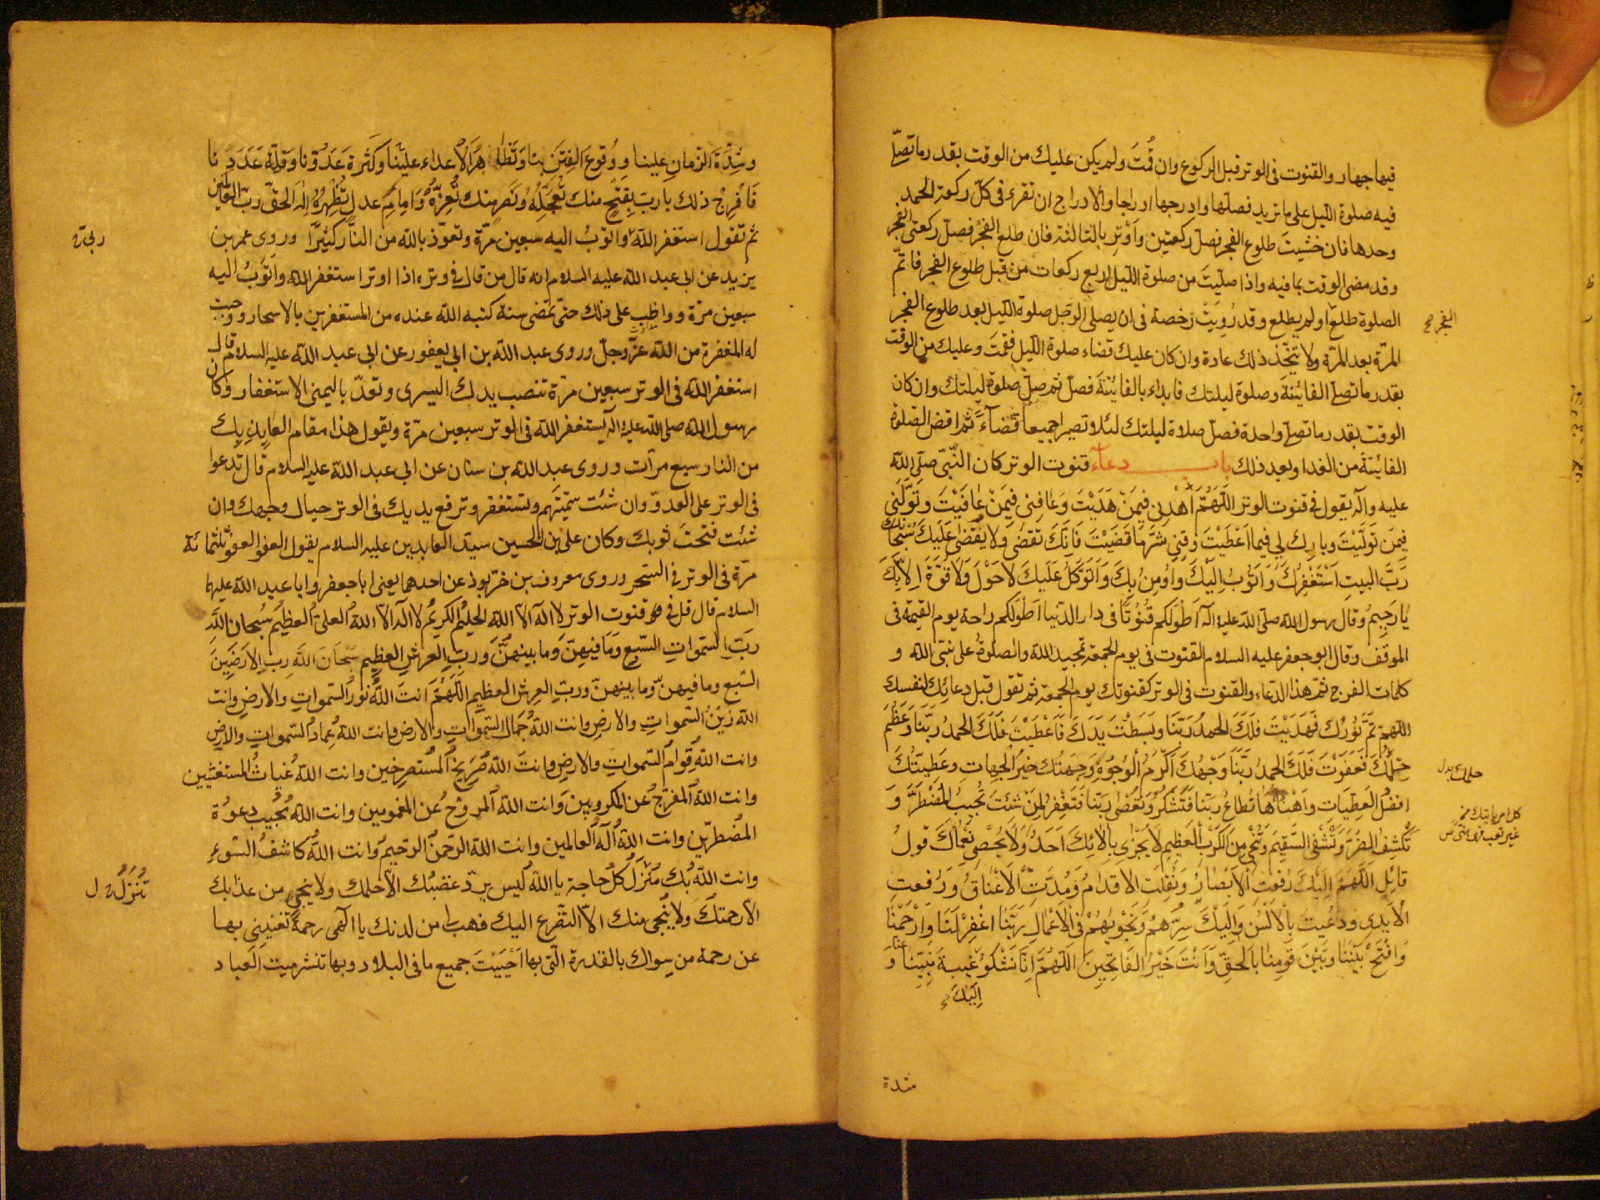 فيها جهار والقنوت فى الوتر قبل الركوع وان قمت ولم يكن عليك من الوقت بقدر ما تصلّى
فيه صلوة الليل على ما تريد فصلّها وادرجها ادراجا والادراج ان تقرء فى كلّ ركعة الحمد
وحدها فان خشيت طلوع الفجر فصل ركعتين واوتر بالثالثة فان طلع الفجر فصلّ ركعتى الفجر
وقد مضى الوقت بما فيه واذا صلّيت من صلوة الليل اربع ركعات من قبل طلوع الفجر فاتمّ
الصلوة طلع او لم يطلع وقد رُويت رخصة فى ان يصلى الرجل صلوة الليل بعد طلوع الفجر
المرّة بعد المرّة ولا تتّخذ ذلك عادة وان كان عليك قضاء صلوة الليل فقمت وعليك من الوقت
بقدر ما تصلى الفائتة وصلوة ليلتك فابداء بالفائتة فصلّ ثم صلّ صلوة ليلتك وان كان
الوقت بقدر ما تصلى واحدة فصلّ صلاة ليلتك لئلا تصيرا جميعا قضاءً ثم اقض الصلوة
الفائتة من الغد او بعد ذلك باب دعاء قنوت الوتر كان النّبى صلّى اللّه
عليه وآله يقول فى قنوت الوتر اللّهمّ اهدنى فيمن هديت وعافنى فيمن عافيت وتولّنى
فيمن تولّيت وبارك لى فيما اعطيت وقنى شرّ ما قضيت فانّك تقضى ولا يُقضى عليك سبحانك
ربّ البيت استغفرك واتوب اليك واومن بك واتوكّل عليك لا حول ولا قوّة الا بك
يا رحيم وقال رسول اللّه صلى اللّه عليه وآله اطولكم قنوتًا فى دار الدنيا اطولكم راحة يوم القيمة فى
الموقف وقال ابو جعفر عليه السلام القنوت فى يوم الجمعة تمجيد اللّه والصلوة على نبىّ اللّه و
كلمات الفرج ثمّ هذا الدعاء والقنوت فى الوتر كقنوتك يوم الجمعة ثم تقول قبل دعائك لنفسك
اللّهمّ تمّ نورك فهديت فلك الحمد ربّنا وبسطت يدك فاعطيت فلك الحمد ربّنا وعظم
حلمك فعفوت فلك الحمد ربّنا وجهك اكرم الوجوه وجهتك خير الجهات وعطيتك
افضل العطيّات واهناها تُطاع ربّنا فتشكر وتُعصى ربّنا فتغفر لمن شئت تجيب المضطرّ و
تكشف الضرّ وتشفى السقيم وتنجى من الكرب العظيم لا يجزى بآلائك احد ولا يُحصى نعماءك قول
قائل اللّهمّ اليك رفعت الابصار ونقلت الاقدام ومدّت الاعناق ورفعت
الايدى ودعيت بالالسن واليك سرّهم ونجويهم فى الاعمال ربّنا اغفر لنا وارحمنا
وافتح بيننا وبين قومنا بالحقّ وانت خير الفاتحين اللّهمّ انّا نشكو غيبة نبيّنا عنّا و
اليك
شدة
الفجر صح
حلمك
كل امر
وشدّة الزمان علينا ووقوع الفتن بنا وتظاهر الاعداء علينا وكثرة عدوّنا وقلّة عددنا
فافرج ذلك يا ربّ بفتح منك تعجّله ونصر منك تُعزّه وامام عدل تُظهره اله الحق ربّ العالمين
ثم تقول استغفر اللّه واتوب اليه سبعين مرّة وتعوذ باللّه من النّار كثيرًا وروى عمر بن
يزيد عن ابى عبد اللّه عليه السلام انه قال من قال فى وتره اذا اوتر استغفر اللّه واتوب اليه
سبعين مرّة وواظب على ذلك حتى تمضى سنة كتبه اللّه عنده من المستغفرين بالاسحار ووجبت
له المغفرة من اللّه عزّ وجلّ وروى عبد اللّه بن ابى يعفور عن ابى عبد اللّه عليه السلام قال
استغفر اللّه فى الوتر سبعين مرّة تنصب يدك اليسرى وتعدّ باليمنى الاستغفار وكان
رسول اللّه صلى اللّه عليه وآله يستغفر اللّه فى الوتر سبعين مرّة ويقول هذا مقام العايذ بك
من النار سبع مرّات وروى عبد اللّه بن سنان عن ابى عبد اللّه عليه السلام قال تدعوا
فى الوتر على العدوّ وان شئت سمّيتهم وتستغفر وترفع يديك فى الوتر حيال وجهك وان
شئت فتحت ثوبك وكان على بن الحسين سيّد العابدين عليه السلام يقول العفو العفو ثلثمائة
مرّة فى الوتر فى السّحر وروى معروف بن خرّبوذ عن احدهما يعنى ابا جعفر وابا عبد اللّه عليهما
السلام قال قل فى قنوت الوتر لا اله الا اللّه الحليم الكريم لا اله الا اللّه العلىّ العظيم سبحان اللّه
ربّ السّموات السّبع وما فيهنّ وما بينهنّ وربّ العرش العظيم سبحان اللّه ربّ الارضين
السّبع وما فيهنّ وما بينهنّ وربّ العرش العظيم اللّهمّ انت اللّه نور السّموات والارض وانت
اللّه زين السّموات والارض وانت اللّه جمال السّموات والارض وانت اللّه عماد السّموات والارض
وانت اللّه قوام السّموات والارض وانت اللّه صريخ المستصرخين وانت اللّه غياث المستغيثين
وانت اللّه المفرّج عن المكروبين وانت اللّه المروّح عن المغمومين وانت اللّه مجيب دعوة
المضطرّين وانت اللّه اله العالمين وانت اللّه الرحمن الرحيم وانت اللّه كاشف السّوء
وانت اللّه بك منزل كلّ حاجة يا اللّه ليس يردّ غضبك الا حلمك ولا ينجى من عذابك
الا رحمتك ولا يُنجى منك الا التضّرع اليك فهب لى من لدنك يا الهى رحمة تغنينى بها
عن رحمة من سواك بالقدرة التى بها احييت جميع ما فى البلاد وبها تنشر ميت العباد
تُنزلُ ل